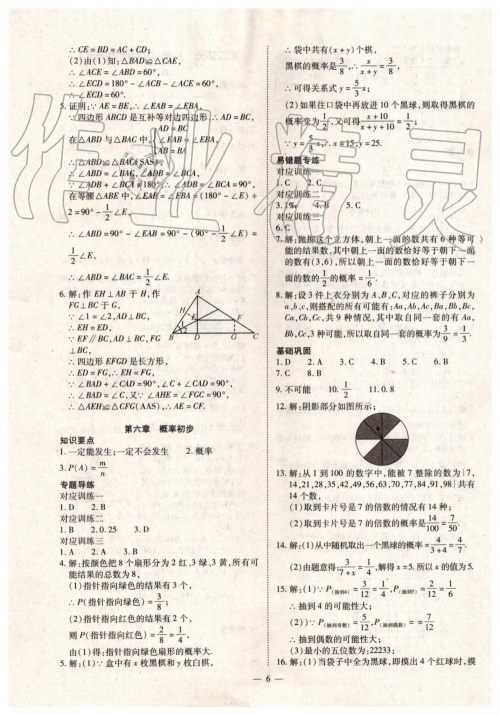 ∴CE=BD=AC+CD;
(2)由(1)知:△BAD≌△CAE,
∴∠ACE=∠ABD=60°,
∴∠ECD=180°-∠ACB-∠ACE=60°,
∴∠ECD=60°.
5. 证明:∵AE=BE,∴∠EAB=∠EBA,
∵四边形ABCD是互补等对边四边形,∴AD=BC,
在△ABD与△BAC中,{AD=BC ∠EAB=∠EBA, AB=BA
∴△ABD≌△BAC(SAS),
∴∠BAG=∠ABD,∠ADB=∠BCA,
∵∠ADB+∠BCA=180°,∴∠ADB=∠BCA=90°,
在等腰△ABE中,∠EAB=∠EBA=(180°-∠E)÷
2=90°-1/2∠E,
∴∠ABD=90°-∠EAB=90°-(90°-1/2∠E)=
1/2∠E,
∴∠ABD=∠BAC=1/2∠E.
6. 解:作EH⊥AB于H,作
FG⊥BC于G,
∵∠1=∠2,AD⊥BC,
∴EH=ED,
∵EF∥BC,AD⊥BC,FG
⊥BC,
∴四边形EFGD是长方形,
∴ED=FG,∴EH=FG,
∵∠BAD+∠CAD=90°,∠C+∠CAD=90°,
∴∠BAD=∠C,又∵∠AHE=∠FGC=90°,
∴△AEH≌△CFG(AAS),∴AE=CF.
A
H
E
F
1
2
B
D
G
C
第六章 概率初步
知识要点
1. 一定能发生;一定不会发生 2. 概率
3. P(A)=m/n
专题导练
对应训练一
1. A 2. D
对应训练二
1. B 2. 0.25 3. D
对应训练三
1. A 2. A 3. A
4. 解:按颜色把8个扇形分为2红、3绿、3黄,所有可
能结果的总数为8,
(1)指针指向绿色的结果有3个,
∴P(指针指向绿色)=3/8,
(2)指针指向红色的结果有2个,
则P(指针指向红色)=2/8=1/4,
由(1)得:指针指向绿色扇形的概率大.
5. 解:(1)∵盒中有x枚黑棋和y枚白棋,
∴袋中共有(x+y)个棋,
黑棋的概率是3/8,∴x/(x+y)=3/8,
∴可得关系式y=5/3x;
(2)如果往口袋中再放进10个黑球,则取得黑棋的
概率变为1/2,又可得(x+10)/(x+y+10)=1/2,
∵y=5/3x,∴x=15,y=25.
易错题专练
对应训练一
1. C 2. C
对应训练二
4. B 5. C
对应训练三
6. C
7. 解:抛掷这个立方体,朝上一面的数共有6种等可
能的结果数,其中朝上一面的数恰好等于朝下一面
的数有(3,6),所以朝上一面的数恰好等于朝下一
面的数的1/2的概率=1/6.
8. 解:设3件上衣分别为A,B,C,对应的裤子分别为
a,b,c,则搭配的所有可能有:Aa,Ab,Ac,Ba,Bb,Bc,
Ca,Cb,Cc,共9种情况,其中取自同一套的有Aa,
Bb,Cc,3种可能,所以取自同一套的概率为3/9=1/3.
基础巩固
1. D 2. A 3. C 4. D 5. B 6. C
7. C 8. B
9. 不可能 10. 1/2 11. 0.8
12. 解:阴影部分如图所示;
13. 解:从1到100的数字中,能被7整除的数为{7,
14,21,28,35,42,49,56,63,70,77,84,91,98}共有
14个数,
(1)取到卡片号是7的倍数的情况有14种;
(2)取到卡片号是7的倍数的概率是14/100=7/50.
14. 解:(1)从中随机取出一个黑球的概率=4/(3+4)=4/7.
(2)由题意得:3/(7+x)=1/4,解得x=5.所以x的值为5.
15. 解:(1)∵P(抽到4)=3/12=1/4,P(抽到3)=2/12=1/6
∴抽到4的可能性大;
(2)∵P(抽到奇数)=5/12,P(抽到偶数)=7/12,
∴抽到偶数的可能性大;
(3)最小的五位数为:22233;
16. 解:(1)当袋子中全为黑球,即摸出4个红球时,摸
— 6 —
作业精灵